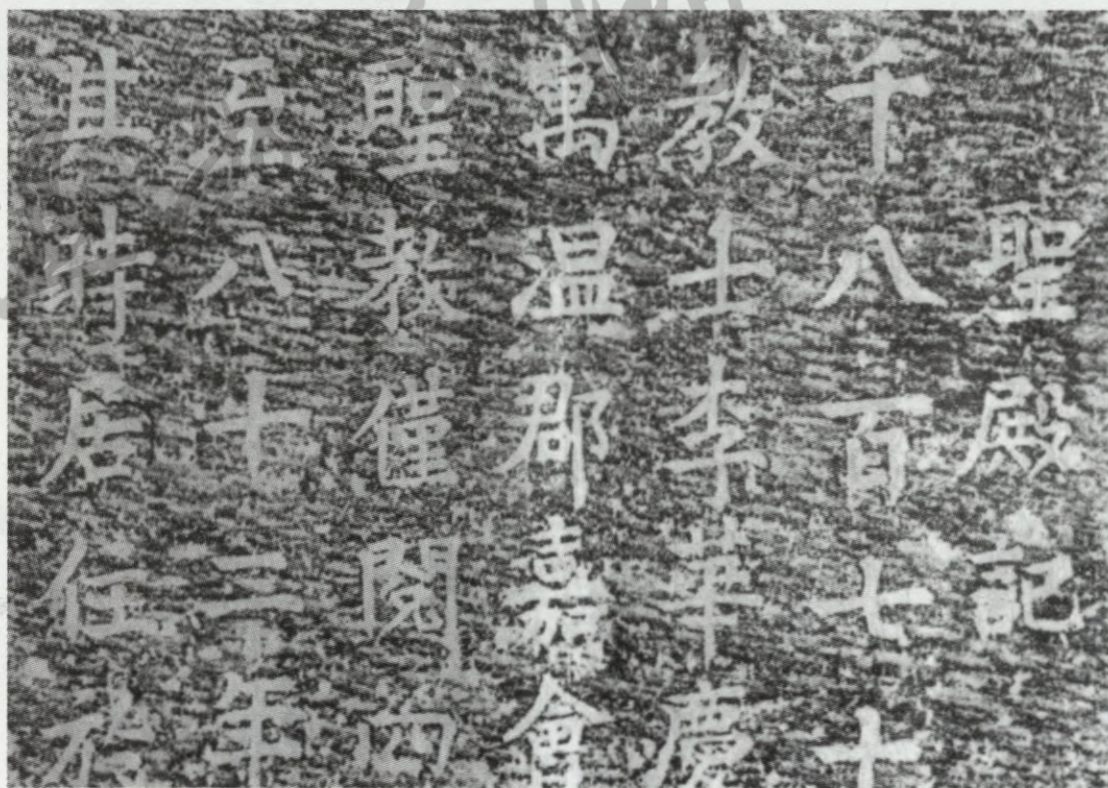 聖殿記
千八百七十
教士李華慶
萬溫郡嘉會
聖教僅閱四
八十二年
其時居任於